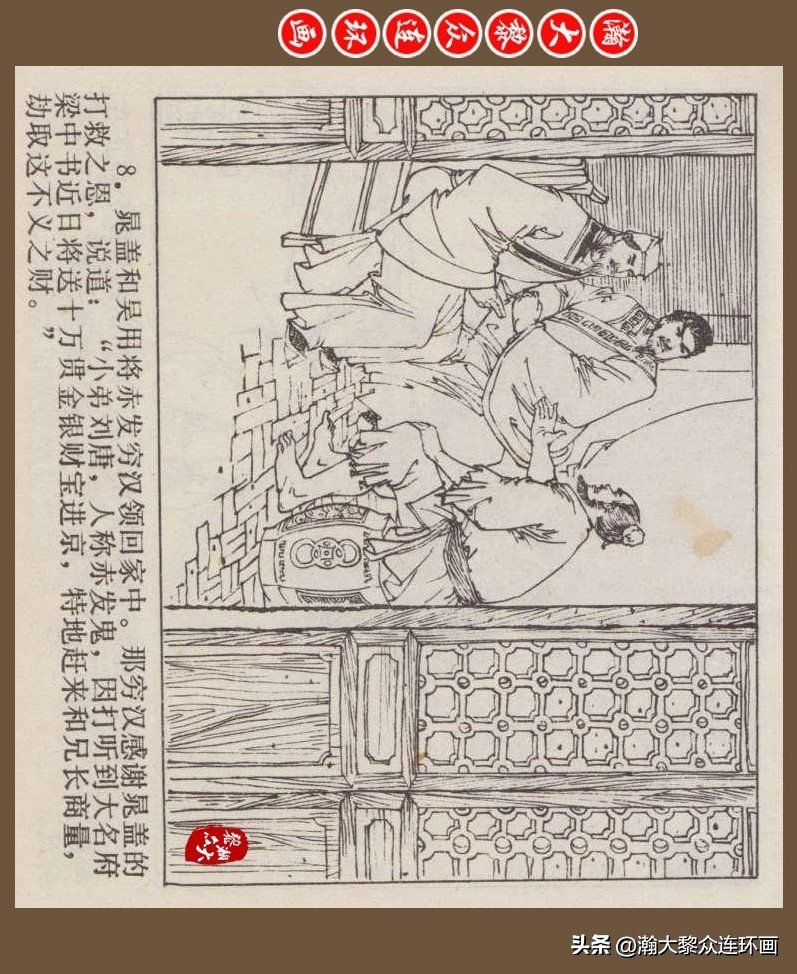 瀚大黎众连环画
8. 晁盖和吴用将赤发穷汉领回家中。那穷汉感谢晁盖的
打救之恩，说道：“小弟刘唐，人称赤发鬼，因打听到大名府
梁中书近日将送十万贯金银财宝进京，特地赶来和兄长商量，
劫取这不义之财。”
头条 @瀚大黎众连环画